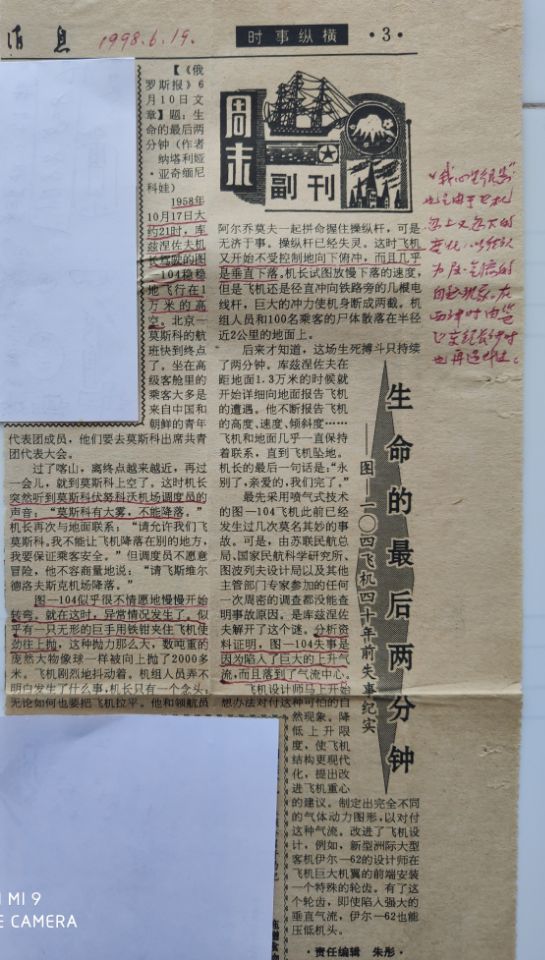 消息 1998.6.19.
时事纵横 ·3·
周末
副刊
生命的最后两分钟
——图一一〇四飞机四十年前失事纪实
【《俄
罗斯报》6
月10日文
章】题：生
命的最后两
分钟（作者
纳塔利娅
·亚奇缅尼
科娃）
1958年
10月17日大
约21时，库
兹涅佐夫机
长驾驶的图
-104稳稳
地飞行在1
万米的高
空。北京—
莫斯科的航
班快到终点
了。坐在高
级客舱里的
乘客大多是
来自中国和
朝鲜的青年
代表团成员，他们要去莫斯科出席共青
团代表大会。
过了喀山，离终点越来越近，再过
一会儿，就到莫斯科上空了。这时机长
突然听到莫斯科伏努科沃机场调度员的
声音：“莫斯科有大雾，不能降落。”
机长再次与地面联系：“请允许我们飞
莫斯科。我不能让飞机降落在别的地方，
我要保证乘客安全。”但调度员不愿意
冒险，他不容商量地说：“请飞斯维尔
德洛夫斯克机场降落。”
图-104似乎很不情愿地慢慢开始
转弯。就在这时，异常情况发生了。似
乎有一只无形的巨手用铁钳夹住飞机使
劲往上抛，这种抛力那么大，数吨重的
庞然大物像球一样被向上抛了2000多
米。飞机剧烈地抖动着。机组人员弄不
明白发生了什么事，机长只有一个念头，
无论如何也要把飞机拉平。他和领航员
阿尔乔莫夫一起拼命握住操纵杆，可是
无济于事。操纵杆已经失灵。这时飞机
又开始不受控制地向下俯冲，而且几乎
是垂直下落。机长试图放慢下落的速度，
但是飞机还是径直冲向铁路旁的几根电
线杆，巨大的冲力使机身断成两截。机
组人员和100名乘客的尸体散落在半径
近2公里的地面上。
后来才知道，这场生死搏斗只持续
了两分钟。库兹涅佐夫在
距地面1.3万米的时候就
开始详细向地面报告飞机
的遭遇。他不断报告飞机
的高度、速度、倾斜度……
飞机和地面几乎一直保持
着联系，直到飞机坠地。
机长的最后一句话是：“永
别了，亲爱的，我们完了。”
最先采用喷气式技术
的图-104飞机此前已经
发生过几次莫名其妙的事
故。可是，由苏联民航总
局、国家民航科学研究所、
图波列夫设计局以及其他
主管部门专家参加的任何
一次周密的调查都没能查
明事故原因。是库兹涅佐
夫解开了这个谜。分析资
料证明，图-104失事是
因为陷入了巨大的上升气
流，而且落到了气流中心。
飞机设计师马上开始
想办法对付这种可怕的自
然现象。降
低上升限
度，使飞机
结构更现代
化，提出改
进飞机重心
的建议。制定出完全不同
的气体动力图形，以对付
这种气流。改进了飞机设
计，例如，新型洲际大型
客机伊尔-62的设计师在
飞机巨大机翼的前端安装
一个特殊的轮齿。有了这
个轮齿，即使陷入强大的
垂直气流，伊尔-62也能
压低机头。
·责任编辑 朱彤·
MI 9
CAMERA